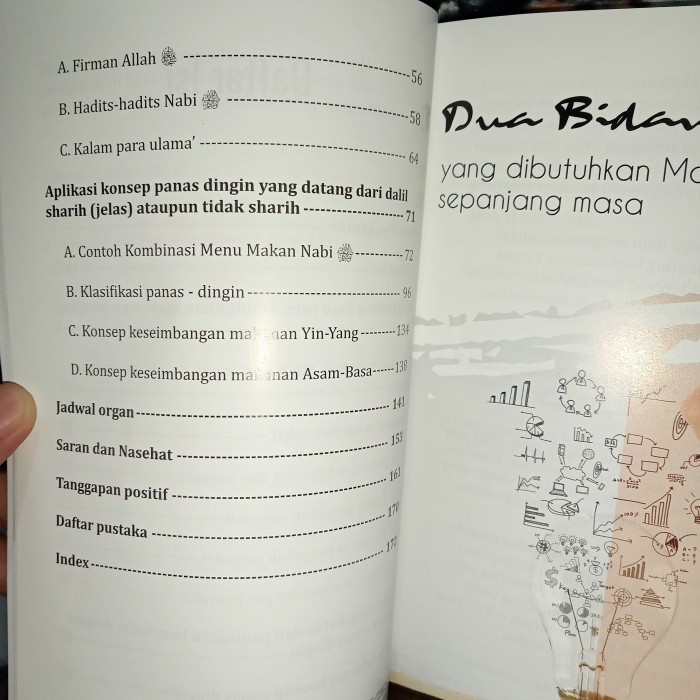 A. Firman Allah ﷻ ---56
B. Hadits-hadits Nabi ﷺ ---58
C. Kalam para ulama' ---64
Aplikasi konsep panas dingin yang datang dari dalil
sharih (jelas) ataupun tidak sharih ---71
A. Contoh Kombinasi Menu Makan Nabi ﷺ ---72
B. Klasifikasi panas - dingin ---96
C. Konsep keseimbangan makanan Yin-Yang ---134
D. Konsep keseimbangan makanan Asam-Basa ---138
Jadwal organ ---141
Saran dan Nasehat ---153
Tanggapan positif ---161
Daftar pustaka ---170
Index ---172
Dua Bidan
yang dibutuhkan Ma
sepanjang masa
100%
$
Plan